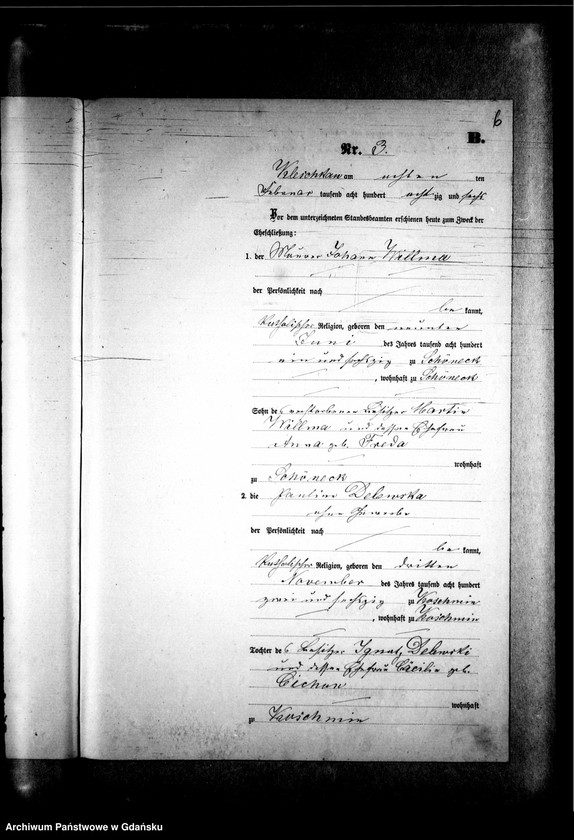 6
B.
Nr. 3.
Kleschkau am achten ten
Februar tausend acht hundert achtzig und sechs
Vor dem unterzeichneten Standesbeamten erschienen heute zum Zweck der
Eheschließung:
1. der Maurer Johann Willma
der Persönlichkeit nach
be kannt,
katholischer Religion, geboren den neunten
Juni des Jahres tausend acht hundert
ein und sechszig zu Schöneck
, wohnhaft zu Schöneck
Sohn des verstorbenen Besitzer Martin
Willma und dessen Ehefrau
Anna geb. Freda
wohnhaft
zu Schöneck
2. die Pauline Delewska
ohne Gewerbe
der Persönlichkeit nach
be kannt,
katholischer Religion, geboren den dritten
November des Jahres tausend acht hundert
zwei und sechszig zu Koschmin
, wohnhaft zu Koschmin
Tochter des Besitzer Ignatz Delewski
und dessen Ehefrau Cäcilie geb.
Cichon
wohnhaft
zu Koschmin
Archiwum Państwowe w Gdańsku